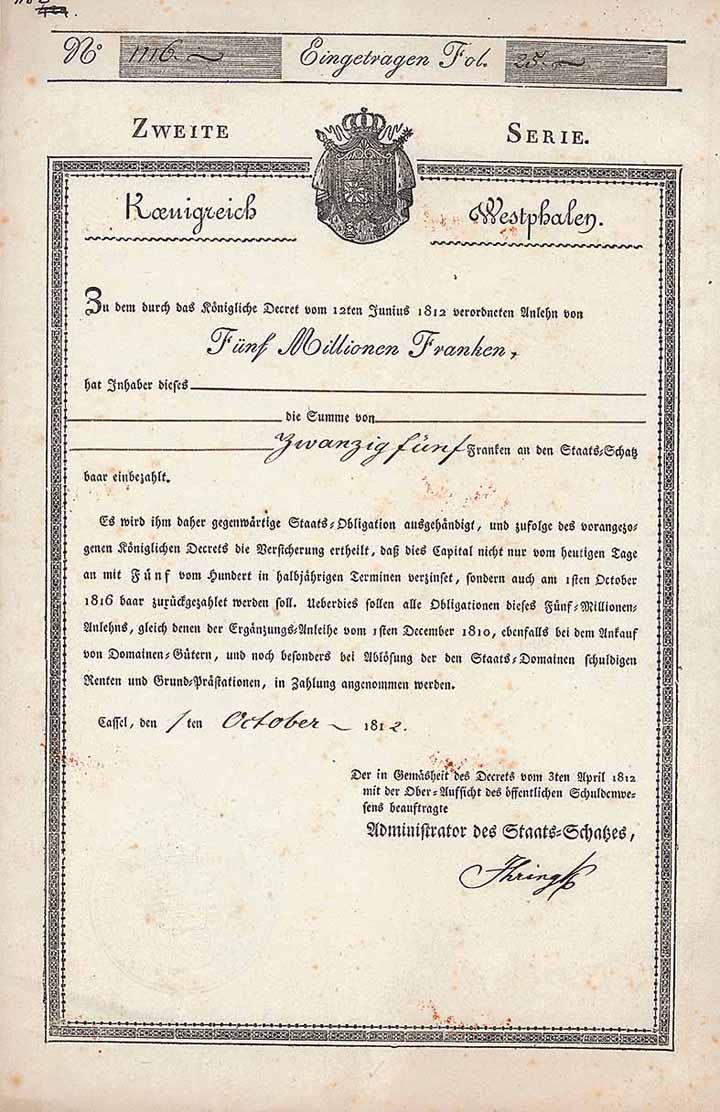 No 1116. Eingetragen Fol. 25.
ZWEITE SERIE.
Kœnigreich Westphalen.
Zu dem durch das Königliche Decret vom 12ten Junius 1812 verordneten Anlehn von
Fünf Millionen Franken,
hat Inhaber dieses
die Summe von
Zwanzig fünf Franken an den Staats-Schatz
baar einbezahlt.
Es wird ihm daher gegenwärtige Staats-Obligation ausgehändigt, und zufolge des vorangezo-
genen Königlichen Decrets die Versicherung ertheilt, daß dies Capital nicht nur vom heutigen Tage
an mit Fünf vom Hundert in halbjährigen Terminen verzinset, sondern auch am 1sten October
1816 baar zurückgezahlet werden soll. Ueberdies sollen alle Obligationen dieses Fünf-Millionen-
Anlehns, gleich denen der Ergänzungs-Anleihe vom 1sten December 1810, ebenfalls bei dem Ankauf
von Domainen-Gütern, und noch besonders bei Ablösung der den Staats-Domainen schuldigen
Renten und Grund-Prästationen, in Zahlung angenommen werden.
Cassel, den 1ten October 1812.
Der in Gemäsheit des Decrets vom 3ten April 1812
mit der Ober-Aufsicht des öffentlichen Schuldenwe-
sens beauftragte
Administrator des Staats-Schatzes,